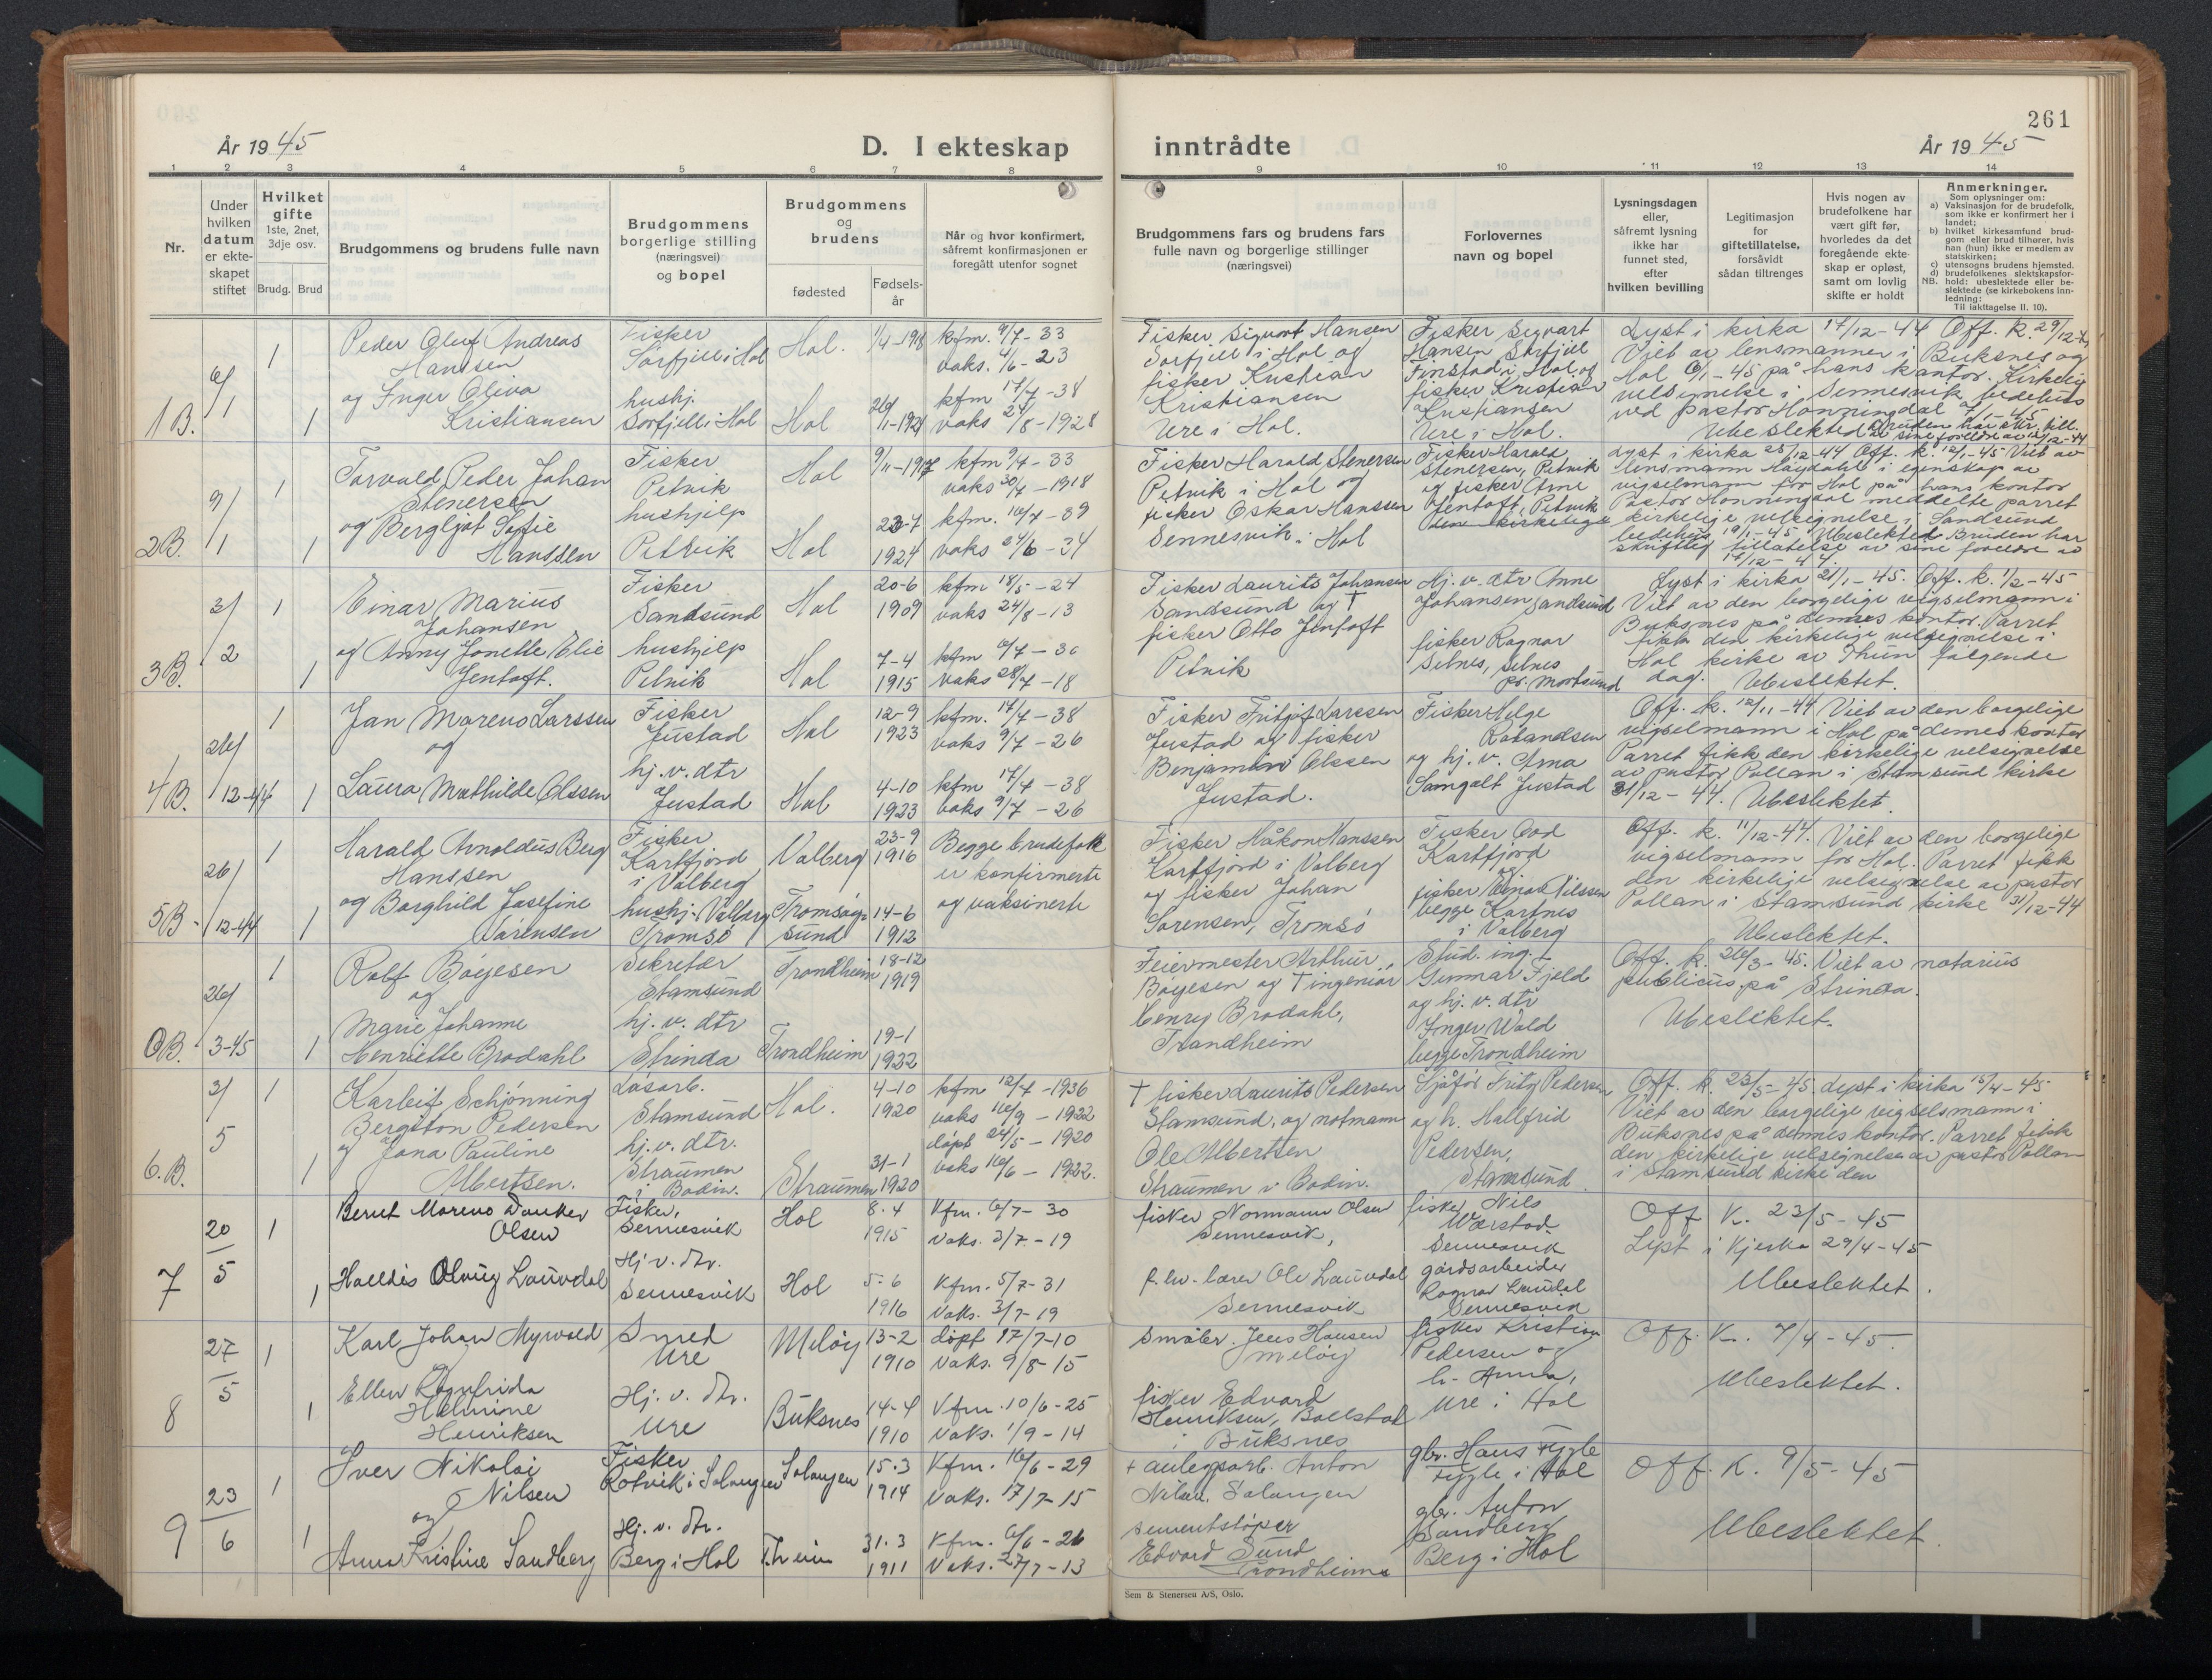 261
År 1945
D. I ekteskap
inntrådte
År 1945
1 2 3 4 5 6 7 8 9 10 11 12 13 14
Nr.
Under
hvilken
datum
er ekte-
skapet
stiftet
Hvilket
gifte
1ste, 2net,
3dje osv.
Brudg. Brud
Brudgommens og brudens fulle navn
Brudgommens
borgerlige stilling
(næringsvei)
og bopel
Brudgommens
og
brudens
fødested
Fødsels-
år
Når og hvor konfirmert,
såfremt konfirmasjonen er
foregått utenfor sognet
Brudgommens fars og brudens fars
fulle navn og borgerlige stillinger
(næringsvei)
Forlovernes
navn og bopel
Lysningsdagen
eller,
såfremt lysning
ikke har
funnet sted,
efter
hvilken bevilling
Legitimasjon
for
giftetillatelse,
forsåvidt
sådan tiltrenges
Hvis nogen av
brudefolkene har
vært gift før,
hvorledes da det
foregående ekte-
skap er opløst,
samt om lovlig
skifte er holdt
Anmerkninger.
Som oplysninger om:
a) Vaksinasjon for de brudefolk,
som ikke er konfirmert her i
landet;
b) hvilket kirkesamfund brud-
gom eller brud tilhører, hvis
han (hun) ikke er medlem av
statskirken;
c) utensogns brudens hjemsted.
d) brudefolkenes slektskapsfor-
NB. hold: ubeslektede eller be-
slektede (se kirkebokens inn-
ledning:
Til iakttagelse II. 10).
1B.
6/1
1
1
Peder Oluf Andreas
Hansen
og Inger Oliva
Kristiansen
Fisker
Sørfjell i Hol
hushj.
Sørfjell i Hol
Hol.
Hol
1/4-1918
26/1-1921
kfm. 9/7-33
vaks. 4/6-23
kfm 17/7-38
vaks 24/8-1928
Fisker Sigvart Hansen
Sørfjell i Hol og
fisker Kristian
Kristiansen
Ure i Hol.
Fisker Sigvart
Hansen Sørfjell
Finstad i Hol og
fisker Kristian
Kristiansen
Ure i Hol.
Lyst i kirka 17/12-44 Off. k. 29/12-44
Viet av lensmannen i Buksnes og
Hol 6/1-45 på hans kontor. Kirkelig
velsignelse i Sennesvik bedehus
ved pastor Honningdal 7/1-45
Ubeslektet Bruden har skr. till.
av sine foreldre av 12/12-44
2B.
9/1
1
1
Torvald Peder Johan
Stenersen
og Bergljot Sofie
Hanssen
Fisker
Petvik
hushjelp
Petvik
Hol
Hol
9/11-1917
23-7
1924
kfm 9/7-33
vaks 30/7-1918
kfm. 16/7-39
vaks 24/6-34
Fisker Harald Stenersen
Petvik i Hol og
fisker Oskar Hanssen
Sennesvik i Hol
Fisker Harald
Stenersen, Petvik
og fisker Arne
Jentoft, Petvik
den kirkelige
Lyst i kirka 25/12-44 Off. k. 12/1-45 Viet av
lensmann Haydahl i egenskap av
vigselmann for Hol på hans kontor
Pastor Honningdal meddelte parret
kirkelige velsignelse i Sandsund
bedehus 19/1-45 Ubeslektet Bruden har
skriftlig tillatelse av sine foreldre av
17/12-44.
3B.
3/2
1
1
Einar Marius
Johansen
og Anny Jonette Elie
Jentoft.
Fisker
Sandsund
hushjelp
Petvik
Hol
Hol
20-6
1909
7-4
1915
kfm 18/5-24
vaks 24/8-13
kfm 6/7-30
vaks 28/7-18
Fisker Laurits Johansen
Sandsund og †
fisker Otto Jentoft
Petvik
Hj. v. dtr Anne
Johansen, Sandsund
fisker Ragnar
Selnes, Selnes
pr. Mortsund
Lyst i kirka 21/1-45. Off. k. 1/2-45
Viet av den borgelige vigselmann i
Buksnes på dennes kontor. Parret
fikk den kirkelige velsignelse i
Hol kirke av Thun følgende
dag. Ubeslektet.
4B.
26/12-44
1
1
Jan Moreno Larssen
og
Laura Mathilde Olssen
Fisker
Justad
hj.v.dtr
Justad
Hol
Hol
12-9
1923
4-10
1923
kfm. 17/7-38
vaks 9/7-26
kfm 17/7-38
vaks 9/7-26
Fisker Fritjof Larssen
Justad og fisker
Benjamin Olssen
Justad.
Fisker Helge
Rolandsen
og hj. v. Oma
Samgalt Justad
Off. k. 12/11-44 Viet av den borgelige
vigselmann i Hol på dennes kontor
Parret fikk den kirkelige velsignelse
av pastor Pollan i Stamsund kirke
31/12-44. Ubeslektet.
5B.
26/12-44
1
1
Harald Arnoldus Berg
Hanssen
og Borghild Josefine
Sørensen
Fisker
Kartfjord
i Valberg
hushj. Valberg
Tromsø
Valberg
Tromsøy-
sund
23-9
1916
14-6
1912
Begge brudefolk
er konfirmerte
og vaksinerte
Fisker Håkon Hanssen
Kartfjord i Valberg
og fisker Johan
Sørensen, Tromsø
Fisker Odd
Kartfjord
og
fisker Einar Nilssen
begge Kartnes
i Valberg
Off. k. 11/12-44. Viet av den borgelige
vigselmann for Hol. Parret fikk
den kirkelige velsignelse av pastor
Pollan i Stamsund kirke 31/12-44
Ubeslektet.
0B.
26/3-45
1
1
Rolf Bøyesen
og
Marie Johanne
Henriette Brodahl
Sekretær
Stamsund
hj. v. dtr
Strinda
Trondheim
Trondheim
18-12
1919
19-1
1922
Feiermester Arthur
Bøyesen og † ingeniør
Henry Brodahl,
Trondheim
Stud. ing.
Gunnar Fjeld
og hj. v. dtr
Inger Wold
begge Trondheim
Off. k. 26/3-45. Viet av notarius
publicus på Strinda.
Ubeslektet.
6.B.
3/5
1
1
Karleif Schjønning
Bergiton Pedersen
og Jona Pauline
Albertsen.
Løsarb.
Stamsund
hj.v. dtr.
Straumen
i Bodin.
Hol.
Straumen
4-10
1920
31-1
1920
kfm 12/7-1936
vaks 16/9-1922
døpt 24/5-1920
vaks 16/6-1922.
† fisker Laurits Pedersen
Stamsund, og notmann
Ole Albertsen
Straumen i Bodin.
Sjåfør Fritz Pedersen
og h. Hallfrid
Pedersen,
Stamsund.
Off. k. 23/5-45. Lyst i kirka 15/4-45
Viet av den borgelige vigselsmann i
Buksnes på dennes kontor. Parret fikk
den kirkelige velsignelse av pastor Pollan
i Stamsund kirke den
7
20/5
1
1
Bernt Moreno Danker
Olsen
Halldis Olaug Lauvdal
Fisker,
Sennesvik
Hj v. dtr.
Sennesvik
Hol
Hol
8.4
1915
5-6
1916
Kfm. 6/7-30
Vaks. 3/7-19
Kfm. 5/7-31
Vaks. 3/7-19
fisker Normann Olsen
Sennesvik,
f. hv. lærer Ole Lauvdal
Sennesvik
fisker Nils
Wærstad
Sennesvik
gårdsarbeider
Ragnar Lauvdal
Sennesvik
Off K. 23/5-45
Lyst i kjerka 29/4-45
Ubeslektet.
8
27/5
1
1
Karl Johan Myrvold
og
Ellen Ragnfrida
Helmine
Henriksen
Smed
Ure
Hj. v. dtr.
Ure
Meløy
Buksnes
13-2
1910
14-4
1910
døpt 17/7-10
Vaks. 9/8-15
Kfm. 10/6-25
Vaks. 1/9-14
Småbr. Jens Hansen
Meløy
fisker Edvard
Henriksen, Ballstad
i Buksnes
fisker Kristian
Pedersen og
h. Anna,
Ure i Hol
Off. K. 7/4-45.
Ubeslektet.
9
23/6
1
1
Iver Nikolai
Nilsen
og
Anna Kristine Sandberg
Fisker
Rotvik i Salangen
Hj. v. dtr.
Berg i Hol
Salangen
Th eim
15.3
1914
31.3
1911
Kfm. 16/6-29
Vaks. 17/7-15
Kfm. 6/6-26
Vaks. 27/7-13
† anlegsarb. Anton
Nilsen. Salangen
sementstøper
Edvard Sund
Trondheim
gbr. Hans Fygle
Fygle i Hol
gbr. Anton
Sandberg
Berg i Hol
Off. K. 9/5-45
Ubeslektet
Sem & Stenersen A/S, Oslo.